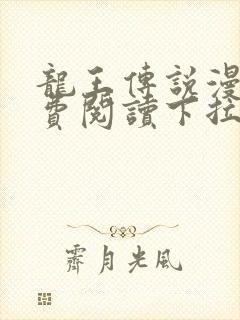 龍王傳說漫
費閱讀下拉
霽月光風